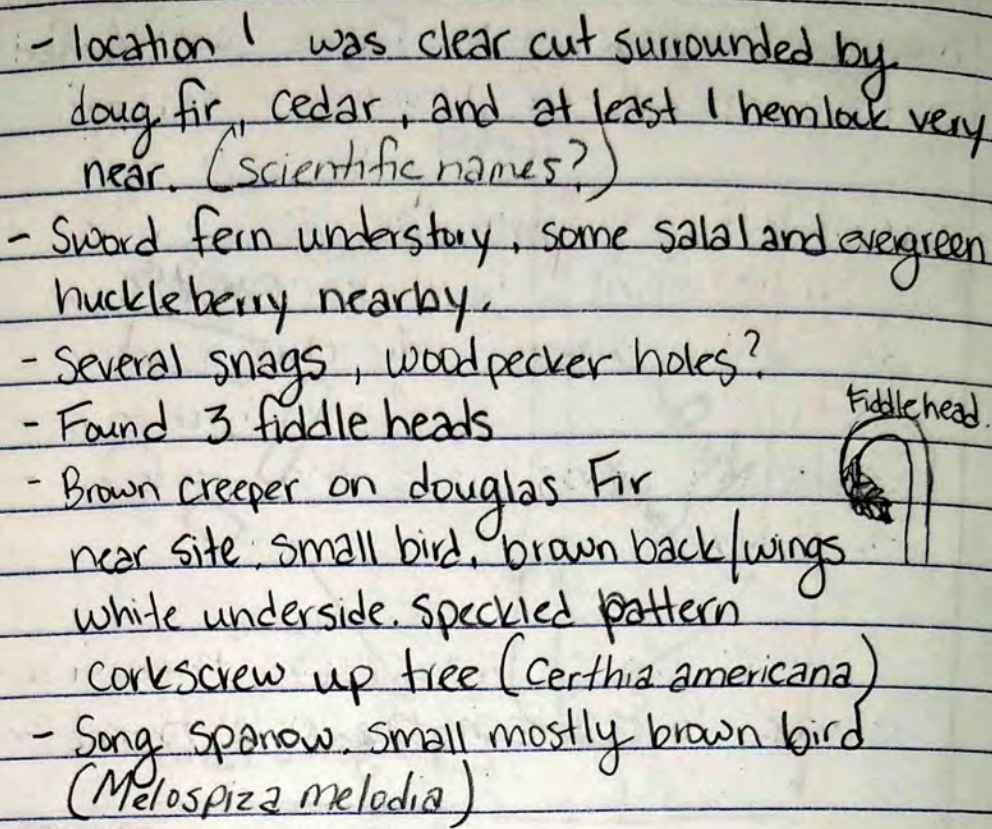 - location 1 was clear cut surrounded by
doug fir, cedar, and at least 1 hemlock very
near. (scientific names?)
- Sword fern understory, some salal and evergreen
huckleberry nearby.
- Several snags, woodpecker holes?
- Found 3 fiddle heads
Fiddlehead.
- Brown creeper on douglas Fir
near site. small bird, brown back/wings
white underside. speckled pattern
corkscrew up tree (Certhia americana)
- Song sparrow. small mostly brown bird
(Melospiza melodia)